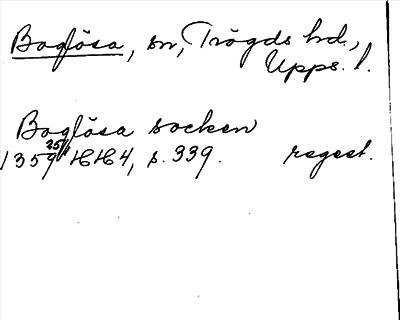 Boglösa, sn, Trögds hd.,
Upps. l.
Boglösa socken
1359 25/11 HH4, s. 339. regest.